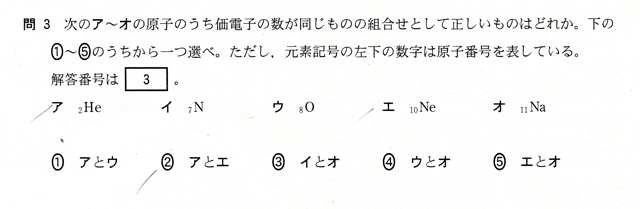 問 3 次のア～オの原子のうち価電子の数が同じものの組合せとして正しいものはどれか。下の
①～⑤のうちから一つ選べ。ただし，元素記号の左下の数字は原子番号を表している。
解答番号は 3 。
ア ₂He イ ₇N ウ ₈O エ ₁₀Ne オ ₁₁Na
① アとウ ② アとエ ③ イとオ ④ ウとオ ⑤ エとオ